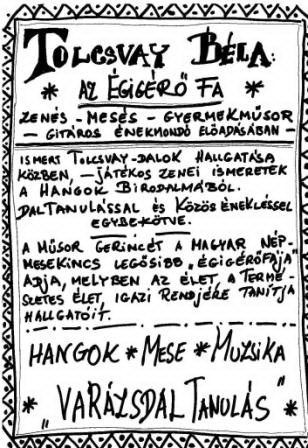 TOLCSVAY BÉLA:
* AZ ÉGIGÉRŐ FA *
ZENÉS - MESÉS - GYERMEKMŰSOR
- GITÁROS ÉNEKMONDÓ ELŐADÁSÁBAN -
ISMERT TOLCSVAY-DALOK HALLGATÁSA
KÖZBEN, - JÁTÉKOS ZENEI ISMERETEK
A HANGOK BIRODALMÁBÓL.
DALTANULÁSSAL ÉS KÖZÖS ÉNEKLÉSSEL
EGYBEKÖTVE.
A MŰSOR GERINCÉT A MAGYAR NÉP-
MESEKINCS LEGŐSIBB „ÉGIGÉRŐFÁJA"
ADJA, MELYBEN AZ ÉLET, A TERMÉ-
SZETES ÉLET, IGAZI RENDJÉRE TANÍTJA
HALLGATÓIT.
HANGOK * MESE * MUZSIKA
* „VARÁZSDAL TANULÁS" *